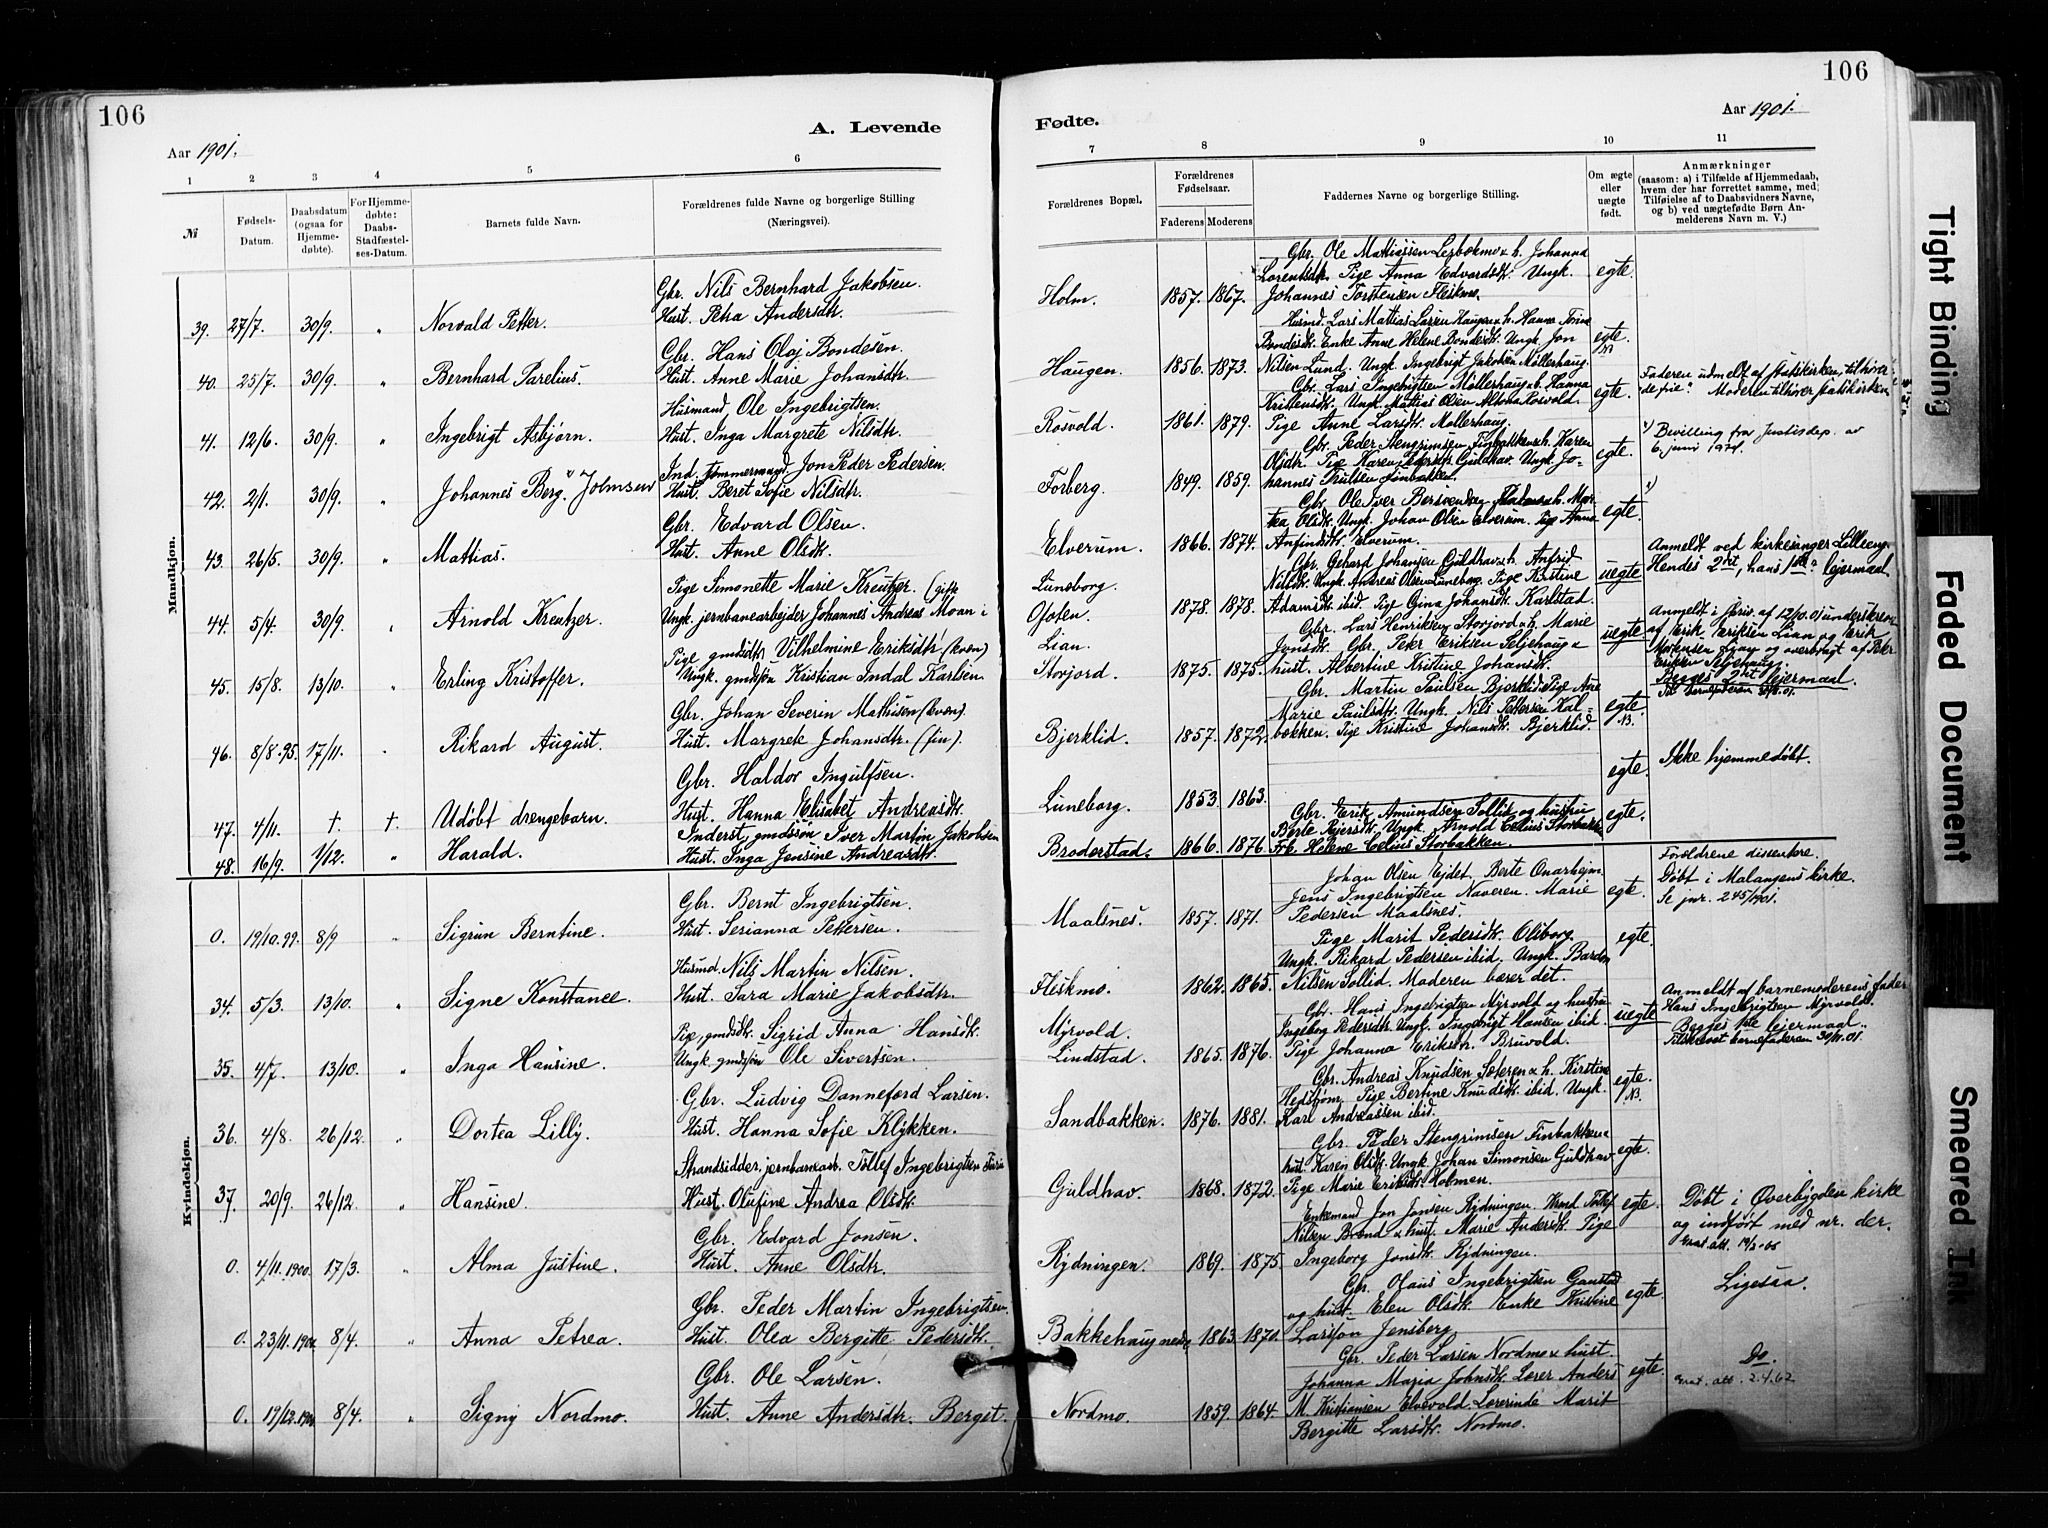 106
Aar 1901.
A. Levende
1 2 3 4 5 6
№
Fødsels-Datum.
Daabsdatum (ogsaa for Hjemmedøbte).
For Hjemmedøbte: Daabs-Stadfæstelses-Datum.
Barnets fulde Navn.
Forældrenes fulde Navne og borgerlige Stilling (Næringsvei).
Mandkjøn.
Gbr. Nils Bernhard Jakobsen.
39. 27/7. 30/9. „ Norvald Petter. Hust. Petra Andersdtr.
Gbr. Hans Olaj Bondesen.
40. 25/7. 30/9. „ Bernhard Parelius. Hust. Anne Marie Johansdtr.
Husmand Ole Ingebrigtsen.
41. 12/6. 30/9. „ Ingebrigt Asbjørn. Hust. Inga Margrete Nilsdtr.
Ind. Tømmermand Jon Peder Pedersen.
42. 2/1. 30/9. „ Johannes Berg. Johnsen Hust. Beret Sofie Nilsdtr.
Gbr. Edvard Olsen.
43. 26/5. 30/9. „ Mattias. Hust. Anne Olsdtr.
Pige Simonette Marie Kreutzer. (gift
44. 5/4. 30/9. „ Arnold Kreutzer. Ungk. jernbanearbejder Johannes Andreas Moan i
Pige, gmdsdtr. Vilhelmine Eriksdtr. (kvæn)
45. 15/8. 13/10. „ Erling Kristoffer. Ungk. gmdsøn Kristian Indal Karlsen
Gbr. Johan Severin Mathisen (kvæn).
46. 8/8.95. 17/11. „ Rikard August. Hust. Margrete Johansdtr. (fin).
Gbr. Haldor Ingulfsen.
47. 4/11. †. †. Udøbt drengebarn. Hust. Hanna Elisabet Andreasdtr.
Inderst, gmdssøn Iver Martin Jakobsen
48. 16/9. 1/12. „ Harald. Hust. Inga Jensine Andreasdtr.
Kvindekjøn.
Gbr. Bernt Ingebrigtsen.
0. 19/10.99. 8/9 „ Sigrun Berntine. Hust. Serianna Pettersen.
Husmd. Nils Martin Nilsen.
34. 5/3. 13/10. „ Signe Konstance. Hust. Sara Marie Jakobsdtr.
Pige, gmdsdtr. Sigrid Anna Hansdtr.
35. 4/7. 13/10. „ Inga Hansine. Ungk. gmdsøn Ole Sivertsen.
Gbr. Ludvig Danneferd Larsen.
36. 4/8. 26/12. „ Dortea Lilly. Hust. Hanna Sofie Klykken.
Strandsidder, jernbanearb. Tollef Ingebrigtsen
37. 20/9. 26/12. „ Hansine. Hust. Olufine Andrea Olsdtr.
Gbr. Edvard Jonsen.
0. 4/11.1900. 17/3. „ Alma Justine. Hust. Anne Olsdtr.
Gbr. Peder Martin Ingebrigtsen.
0. 23/11.1900 8/4. „ Anna Petrea. Hust. Olea Bergitte Pedersdtr.
Gbr. Ole Larsen.
0. 19/12.1900 8/4. „ Signy Nordmo. Hust. Anne Andersdtr. Berget.
106
Fødte.
Aar 1901.
7 8 9 10 11
Forældrenes Bopæl.
Forældrenes Fødselsaar.
Faderens Moderens
Faddernes Navne og borgerlige Stilling.
Om ægte eller uægte født.
Anmærkninger
(saasom: a) i Tilfælde af Hjemmedaab,
hvem der har forrettet samme, med
Tilføielse af to Daabsvidners Navne,
og b) ved uægtefødte Børn Anmelderens Navn m. V.)
Gbr. Ole Mattiassen Lejbekmo & h. Johanna
Lorentsdtr. Pige Anna Edvardsdtr. Ungk. egte.
Holm. 1857. 1867. Johannes Torstensen Fleskmo.
Husmd. Lars Mattias Larsen Haugen & h. Hanna Trine
Bondesdtr. Enke Anne Helene Bondesdtr. Ungk. Jon egte.
Haugen. 1856. 1873. Nilsen Lund. Ungk. Ingebrigt Jakobsen Møllerhaug.
Faderen udmeldt af statskirken, tilhører
"de frie". Moderen tilhører statskirken
Gbr. Lars Ingebrigtsen Møllerhaug & h. Hanna
Kristensdtr. Ungk. Mattias Olsen Rosvold. egte.
Rosvold. 1861. 1879. Pige Anne Larsdtr. Møllerhaug.
1) Bevilling fra Justisdep. av
6. juni 1974.
Gbr. Peder Stengrimsen Finbakken & h. Karen
Olsdtr. Pige Karen Pedersdtr. Guldhav. Ungk. Jo- egte.
Forberg. 1849. 1859. hannes Trulsen Finbakken.
Gbr. Ole Iver Bersvendsen & h. Mar-
tea Olsdtr. Ungk. Johan Olsen Elverum. Pige Anna egte. 1)
Elverum. 1866. 1874. Anfindsdtr. Elverum.
Gbr. Gehard Johansen Guldhav & h. Anfrid
Luneborg. Nilsdtr. Ungk. Andreas Olsen Luneborg. Pige Kirstine uegte
Ofoten. 1878. 1878. Adamsdtr. ibid. Pige Gina Johansdtr. Karlstad.
Anmeldt ved kirkesanger Lilleeng.
Hendes 2det, hans 1ste lejermaal
Gbr. Lars Henriksen Storjord & h. Marie
Lian. Jonsdtr. Gbr. Peter Eriksen Seljehaug & uegte
Storjord. 1875. 1875. hust. Albertine Kristine Johansdtr.
Anmeldt i skriv. af 12/10.01 underskreven
af Erik Eriksen Lian og Erik
Mortensen og overbragt af Peter
Eriksen Seljehaug.
Begges 2det lejermaal.
Gbr. Martin Paulsen Bjerklid. Pige Ane
Marie Paulsdtr. Ungk. Nils Pettersen Kal- egte.
Bjerklid. 1857. 1872. bekken. Pige Kristine Johansdtr. Bjerklid.
Luneborg. 1853. 1863. egte. Ikke hjemmedøbt.
Gbr. Erik Amundsen Sollid og hustru
Berte Rejersdtr. Ungk. Arnold Celius Storbakk. egte.
Broderstad. 1866. 1876. Frk. Helene Celius Storbakken.
Johan Olsen Ejdet. Berte Onarhejm
Jens Ingebrigtsen Naveren. Marie egte.
Maalsnes. 1857. 1871. Pedersen Maalsnes.
Forældrene dissentere.
Døbt i Malangens kirke.
Se jnr. 245/1901.
Pige Marit Pedersdtr. Olsborg.
Ungk. Rikard Pedersen ibid. Ungk. Bardon egte.
Fleskmo. 1862. 1865. Nilsen Sollid. Moderen bærer det.
Gbr. Hans Ingebrigtsen Myrvold og hustru
Myrvold. Ingeborg Pedersdtr. Ungk. Ingebrigt Hansen ibid. uegte
Lindstad. 1865. 1876. Pige Johanna Eriksdtr. Bruvold.
Anmeldt af barnemoderens fader
Hans Ingebrigtsen Myrvold.
Begges 1ste lejermaal.
Tilskrevet barnefaderen 30/11.01.
Gbr. Andreas Knudsen Sæteren & h. Kirstine
Hedstrøm. Pige Bertine Knudsdtr. ibid. Ungk. egte.
Sandbakken. 1876. 1881. Karl Andreassen ibid.
Gbr. Peder Stengrimsen Finbakken &
hust. Karen Olsdtr. Ungk. Johan Simonsen Guldhav. egte.
Guldhav. 1868. 1872. Pige Marie Eriksdtr. Holmen.
Enkemand Jon Jonsen Rydningen. Tollef
Nilsen Brend & hust. Marie Andersdtr. Pige egte.
Rydningen. 1869. 1875. Ingeborg Jonsdtr. Rydningen.
Døbt i Øverbygden kirke
og indført med nr. der.
Gbr. Olaus Ingebrigtsen Ganstad
og hust. Elen Olsdtr. Enke Kristine egte.
Bakkehaug nedre 1863. 1870. Larsson Jensberg.
Ligesaa.
Gbr. Peder Larsen Nordmo & hust.
Johanna Maria Johnsdtr. Lærer Anders egte.
Nordmo. 1859. 1864. M. Kristiansen Elvevold. Lærerinde Marit
Bergitte Larsdtr. Nordmo.
Do.
att. 2.4.62
Tight Binding
Faded Document
Smeared Ink